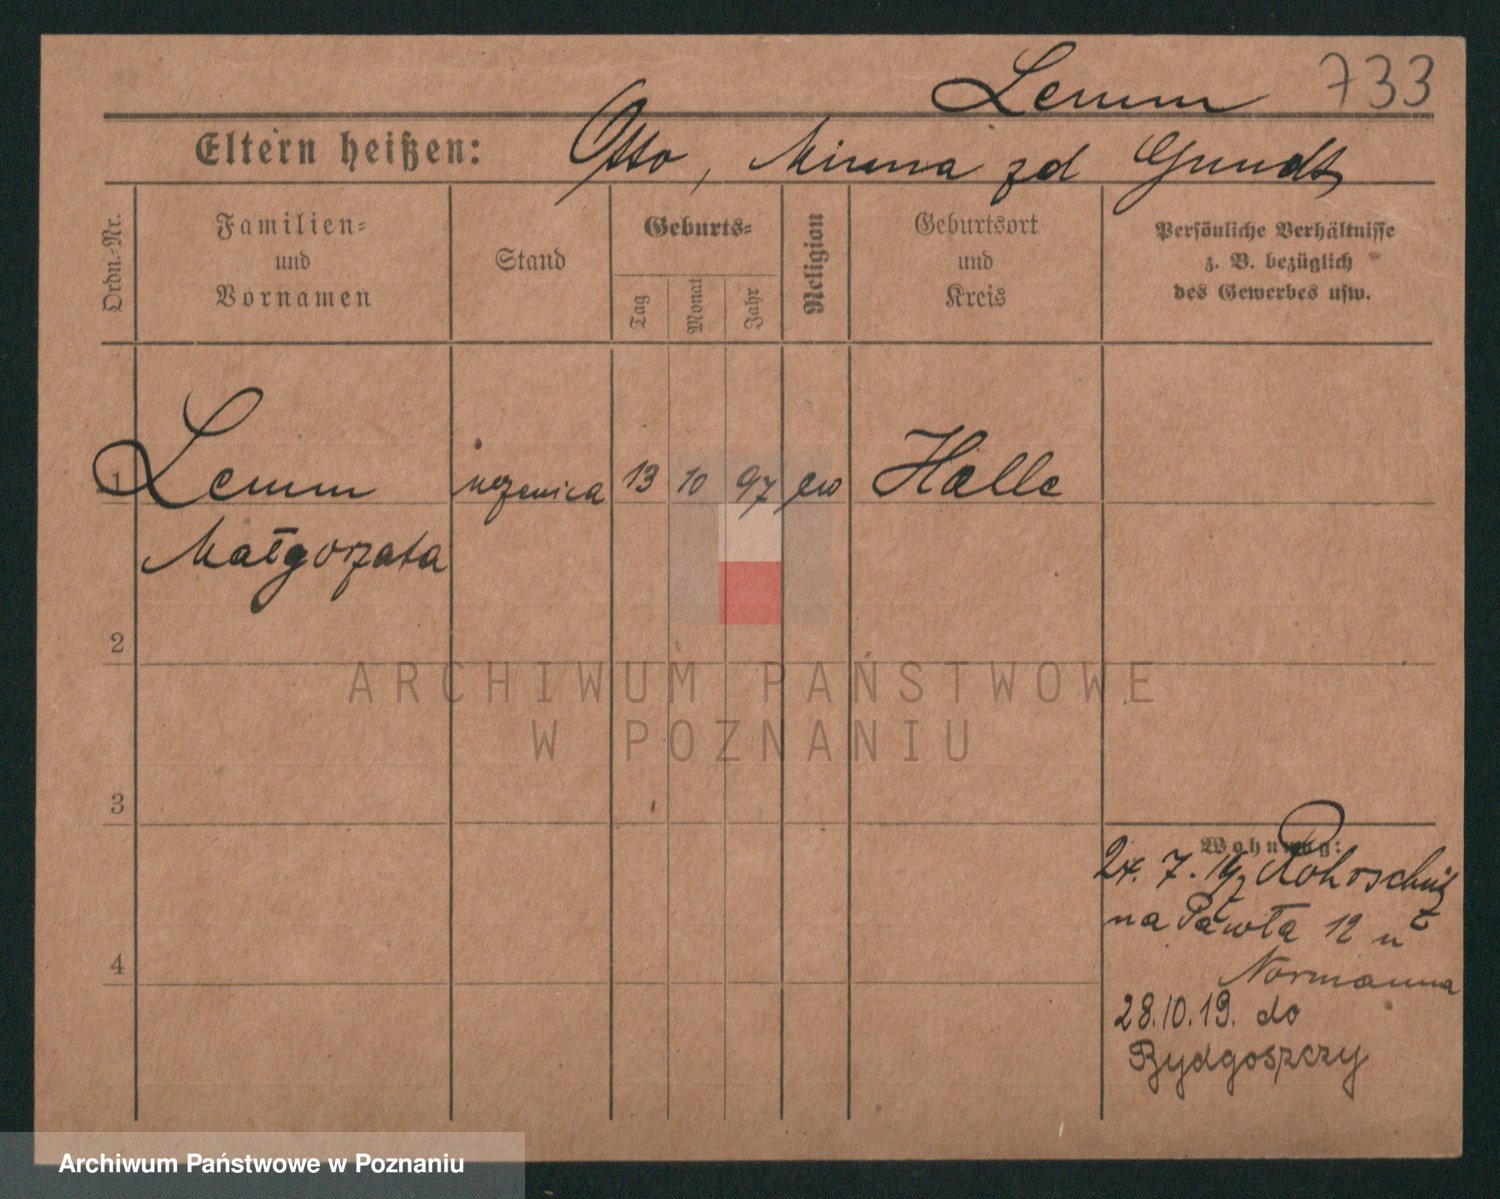 Lemm 733
Eltern heißen: Otto, Minna zd Gundt
Ordn.-Nr.
Familien-
und
Vornamen
Stand
Geburts-
Tag
Monat
Jahr
Religion
Geburtsort
und
Kreis
Persönliche Verhältnisse
z. B. bezüglich
des Gewerbes usw.
1 Lemm uczenica 13 10 97 ew Halle
Małgorzata
2
3
4
Wohnung:
24. 7. 19 z Rohrschütz
na Pawła 12 u
Normanna
28.10.19. do
Bydgoszczy
ARCHIWUM PAŃSTWOWE
W POZNANIU
Archiwum Państwowe w Poznaniu